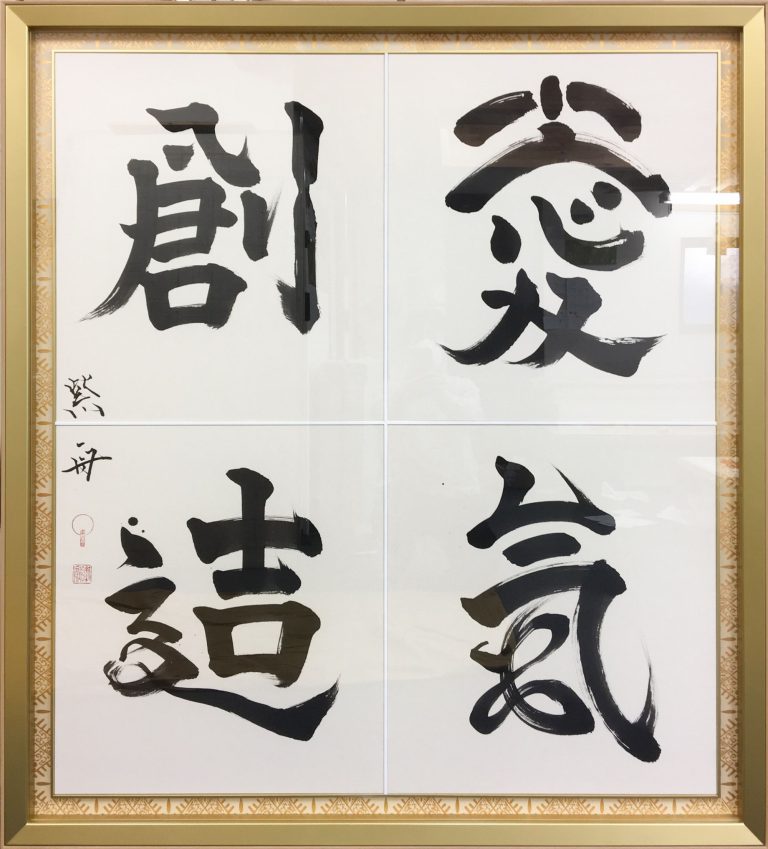 愛氣
創造
紫舟